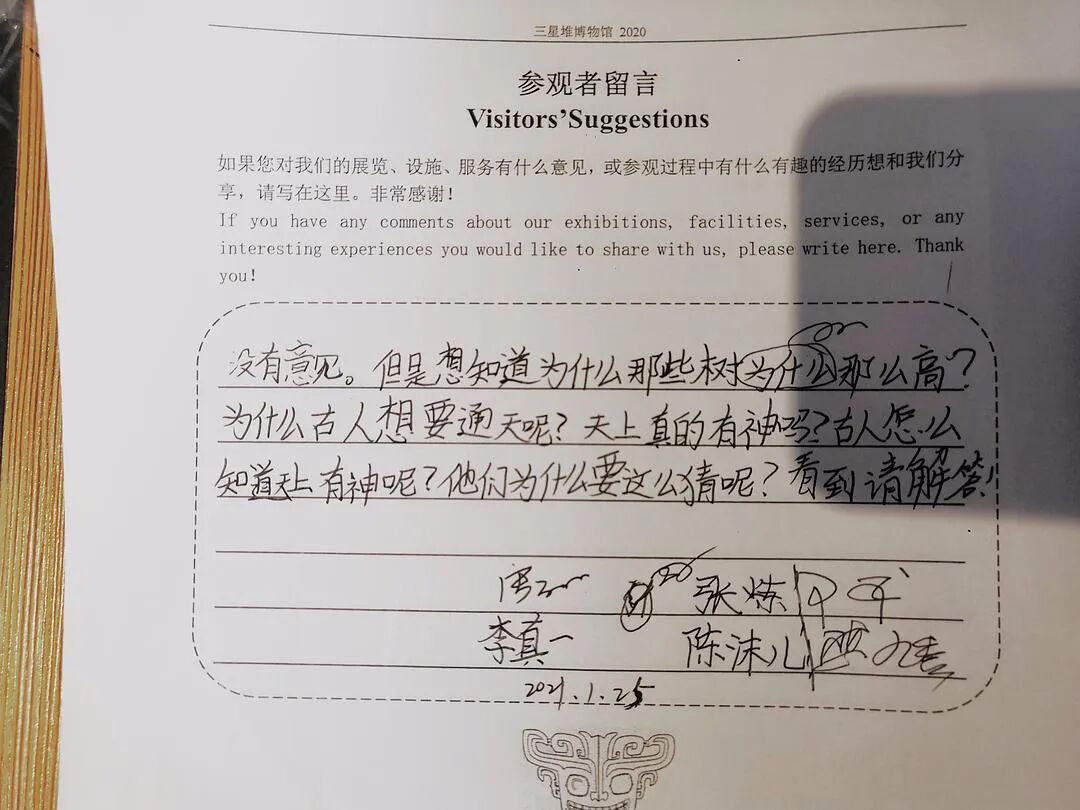 三星堆博物馆 2020
参观者留言
Visitors'Suggestions
如果您对我们的展览、设施、服务有什么意见，或参观过程中有什么有趣的经历想和我们分
享，请写在这里。非常感谢！
If you have any comments about our exhibitions, facilities, services, or any
interesting experiences you would like to share with us, please write here. Thank
you!
没有意见。但是想知道为什么那些树为什么那么高？
为什么古人想要通天呢？天上真的有神吗？古人怎么
知道天上有神呢？他们为什么要这么猜呢？看到请解答！
张炼
李真一 陈沫儿
2021.1.25